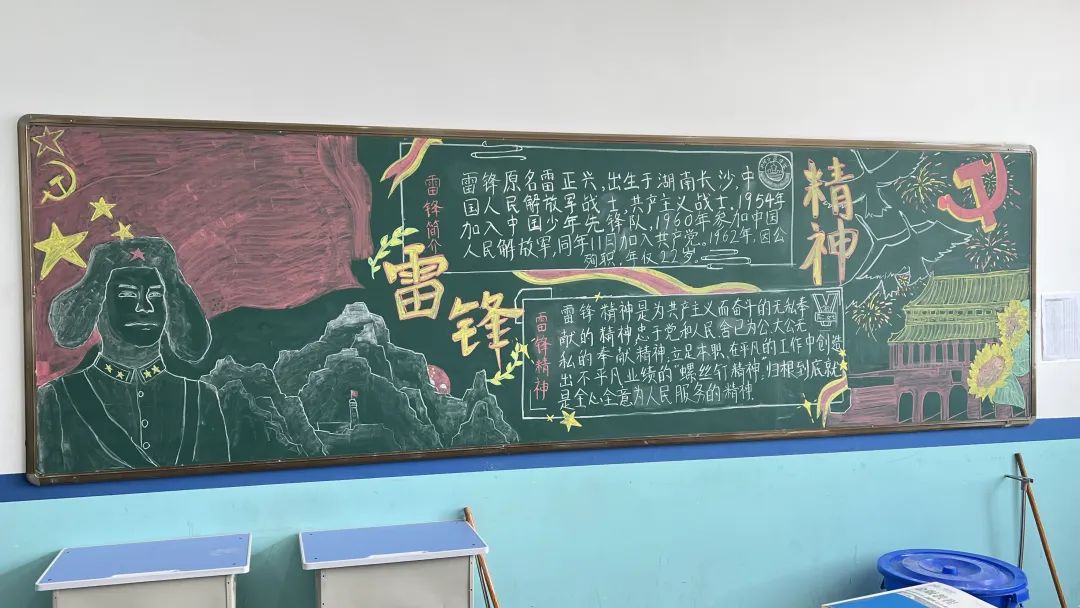 雷锋精神
雷锋简介
雷锋原名雷正兴,出生于湖南长沙,中
国人民解放军战士,共产主义战士,1954年
加入中国少年先锋队,1960年参加中国
人民解放军,同年11月加入共产党。1962年,因公
殉职,年仅22岁。
雷锋精神
雷锋精神是为共产主义而奋斗的无私奉
献的精神忠于党和人民舍己为公,大公无
私的奉献精神,立足本职、在平凡的工作中创造
出不平凡业绩的"螺丝钉精神",归根到底就
是全心全意为人民服务的精神.